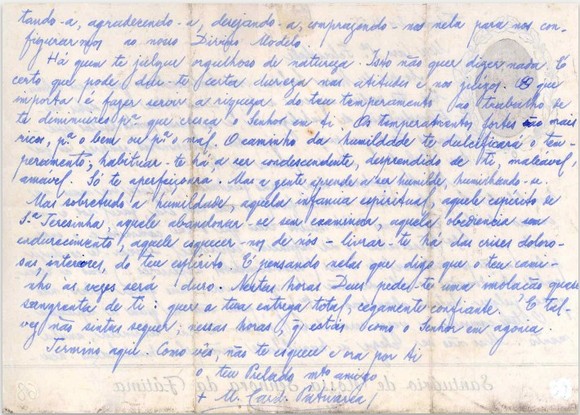 tando-a, agradecendo-a, desejando-a, comprazendo-nos nela para nos con-
figurarmos ao nosso Divino Modelo.
Há quem te julgue orgulhoso de natureza. Isto não quer dizer nada. É
certo que pode dar-te certa dureza nas atitudes e nos juizos. O que
importa é fazer servir a riqueza do teu temperamento ao trabalho se
te diminuires pª que cresça o Senhor em ti. Os temperamentos fortes são mais
ricos, pª o bem ou pª o mal. O caminho da humildade te dulcificará o tem-
peramento; habituar-te há a ser condescendente, desprendido de ti, maleavel
amável. Só te aperfeiçoará. Mas a gente aprende a ser humilde, humilhando-se.
Mas sobretudo a humildade, aquela infancia espiritual, aquele espirito de
S.ta Teresinha, aquele abandonar-se sem examinar, aquela obediência sem
endurecimento, aquele esquecer-nos de nós - livrar-te há das crises doloro-
sas, interiores, do teu espírito. É pensando nelas que digo que o teu cami-
nho às vezes será duro. Nestas horas Deus pede-te uma imolação quase
sangrenta de ti: quer a tua entrega total, cegamente confiante. E tal-
vez não sintas sequer, nessas horas, q estás como o Senhor em agonia.
Termino aqui. Como vês, não te esquece e ora por ti
o teu Prelado mto amigo
+ M. Card. Patriarca
Santuário de Nossa Senhora da Fátima